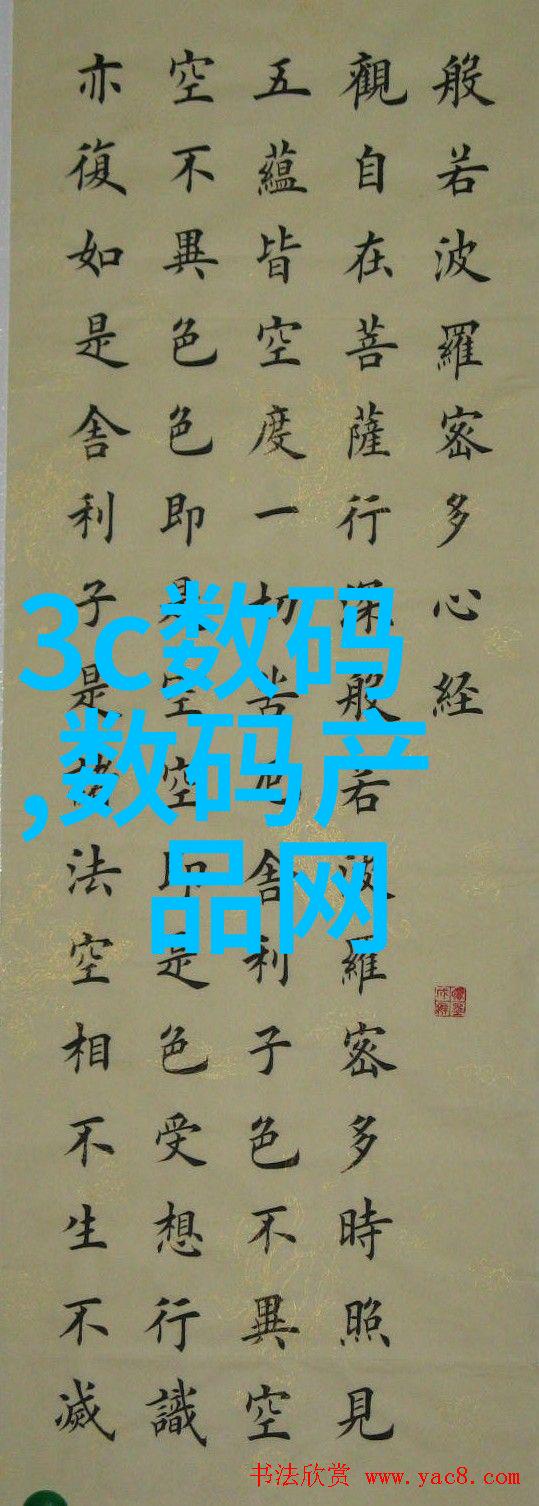 般若波羅密多心経
觀自在菩薩行深般若波羅密多時照見
五蘊皆空度一切苦厄舍利子色不異空
空不異色色即是空空即是色受想行識
亦復如是舍利子是諸法空相不生不滅
3c数码
,数码产
品网
书法欣赏 www.yac8.com